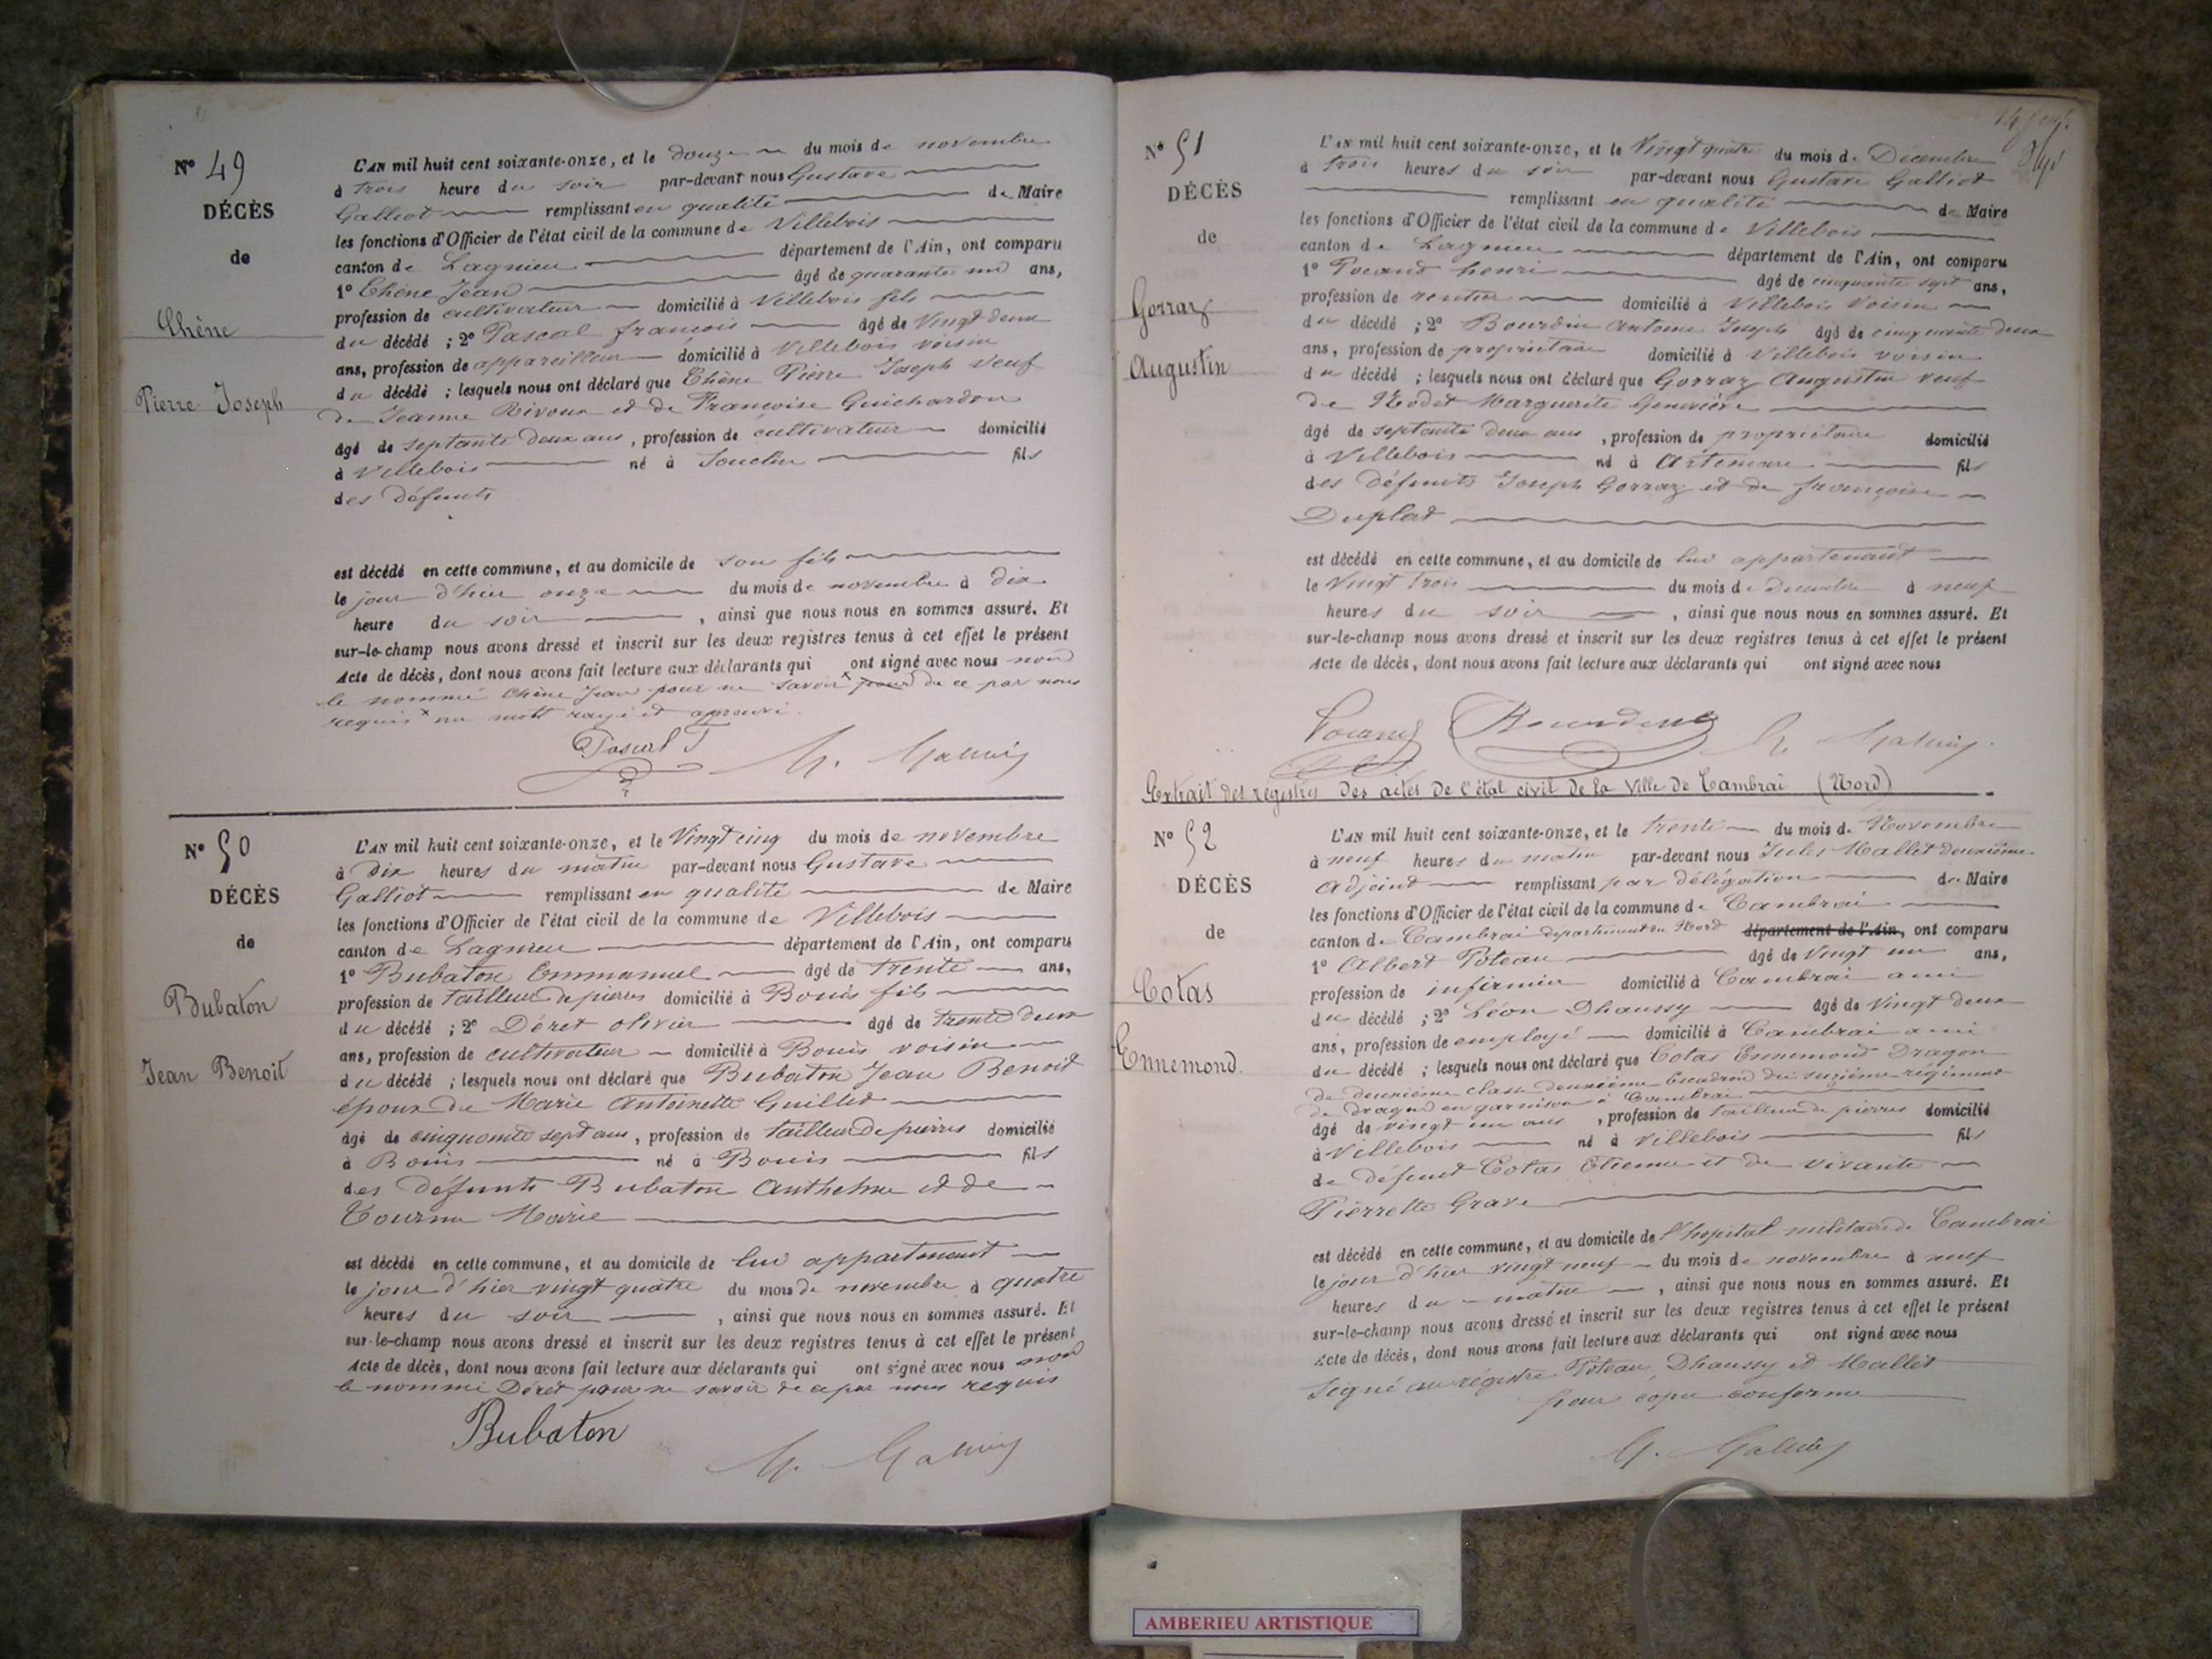 N° 49
DÉCÈS
de
Chêne
Pierre Joseph
L'AN mil huit cent soixante-onze, et le douze du mois de novembre
à trois heure du soir par-devant nous Gustave
Galliot remplissant en qualité de Maire
les fonctions d'Officier de l'état civil de la commune de Villebois
canton de Lagnieu département de l'Ain, ont comparu
1° Chêne Jean âgé de quarante un ans,
profession de cultivateur domicilié à Villebois fils
du décédé ; 2° Pascal françois âgé de Vingt deux
ans, profession de appareilleur domicilié à Villebois voisin
du décédé ; lesquels nous ont déclaré que Chêne Pierre Joseph veuf
de Jeanne Rivoux et de Françoise Guichardon
âgé de septante deux ans, profession de cultivateur domicilié
à Villebois né à Souclin fils
des défunts
est décédé en cette commune, et au domicile de son fils
le jour d'hier onze du mois de novembre à dix
heure du soir , ainsi que nous nous en sommes assuré. Et
sur-le-champ nous avons dressé et inscrit sur les deux registres tenus à cet effet le présent
Acte de décès, dont nous avons fait lecture aux déclarants qui ont signé avec nous non
le nommé Chêne Jean pour ne savoir × pour de ce par nous
requis × un mott rayé et aprouvé.
Pascal F
N° 50
DÉCÈS
de
Bubaton
Jean Benoit
L'AN mil huit cent soixante-onze, et le Vingt cinq du mois de novembre
à Dix heures du matin par-devant nous Gustave
Galliot remplissant en qualité de Maire
les fonctions d'Officier de l'état civil de la commune de Villebois
canton de Lagnieu département de l'Ain, ont comparu
1° Bubaton Emmanuel âgé de trente ans,
profession de tailleur de pierres domicilié à Bouis fils
du décédé ; 2° Déret olivier âgé de trente deux
ans, profession de cultivateur domicilié à Bouis voisin
du décédé ; lesquels nous ont déclaré que Bubaton Jean Benoit
époux de Marie Antoinette Guillet
âgé de cinquante sept ans, profession de tailleur de pierres domicilié
à Bouis né à Bouis fils
des défunts Bubaton Anthelme et de
Marie
est décédé en cette commune, et au domicile de lui appartenant
le jour d'hier vingt quatre du mois de novembre à quatre
heures du soir , ainsi que nous nous en sommes assuré. Et
sur-le-champ nous avons dressé et inscrit sur les deux registres tenus à cet effet le présent
Acte de décès, dont nous avons fait lecture aux déclarants qui ont signé avec nous non
le nommé Déret pour ne savoir de ce par nous requis
Bubaton
N° 51
DÉCÈS
de
Gorraz
Augustin
L'AN mil huit cent soixante-onze, et le Vingt quatre du mois de Décembre
à trois heures du soir par-devant nous Gustave Galliot
remplissant en qualité de Maire
les fonctions d'Officier de l'état civil de la commune de Villebois
canton de Lagnieu département de l'Ain, ont comparu
1° Pocand henri âgé de cinquante sept ans,
profession de rentier domicilié à Villebois voisin
du décédé ; 2° Bourdin Antoine Joseph âgé de cinquante deux
ans, profession de propriétaire domicilié à Villebois voisin
du décédé ; lesquels nous ont déclaré que Gorraz Augustin veuf
de Marguerite Geneviève
âgé de septante deux ans, profession de propriétaire domicilié
à Villebois né à Artemare fils
des défunts Joseph Gorraz et de françoise
Duplat
est décédé en cette commune, et au domicile de lui appartenant
le Vingt Trois du mois de decembre à neuf
heures du soir , ainsi que nous nous en sommes assuré. Et
sur-le-champ nous avons dressé et inscrit sur les deux registres tenus à cet effet le présent
Acte de décès, dont nous avons fait lecture aux déclarants qui ont signé avec nous
Extrait des registres des actes de l'état civil de la Ville de Cambrai (Nord)
N° 52
DÉCÈS
de
Cotas
Ennemond.
L'AN mil huit cent soixante-onze, et le trente du mois de Novembre
à neuf heures du matin par-devant nous Jules Mallet deuxième
Adjoint remplissant par délégation du Maire
les fonctions d'Officier de l'état civil de la commune de Cambrai
canton de Cambrai département du Nord département de l'Ain, ont comparu
1° Albert Poteau âgé de vingt un ans,
profession de infirmier domicilié à Cambrai ami
du décédé ; 2° Léon Dhaussy âgé de vingt deux
ans, profession de employé domicilié à Cambrai ami
du décédé ; lesquels nous ont déclaré que Cotas Ennemond Dragon
de deuxième classe deuxième Escadron du seizième régiment
de dragon en garnison à Cambrai
âgé de vingt un ans , profession de tailleur de pierres domicilié
à Villebois né à Villebois fils
de défunt Cotas Etienne et de vivante
Pierrette Grave
est décédé en cette commune, et au domicile de l'hopital militaire de Cambrai
le jour d'hier vingt neuf du mois de novembre à neuf
heures du matin , ainsi que nous nous en sommes assuré. Et
sur-le-champ nous avons dressé et inscrit sur les deux registres tenus à cet effet le présent
Acte de décès, dont nous avons fait lecture aux déclarants qui ont signé avec nous
Signé au régistre Poteau, Dhaussy et Mallet
pour copie conforme
AMBERIEU ARTISTIQUE